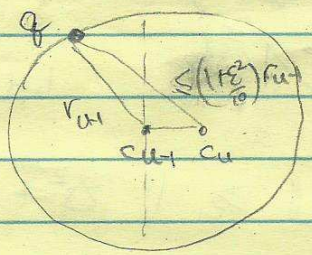 q
≤(1+ε²/10) r_{u-1}
r_{u-1}
c_{u-1} c_u